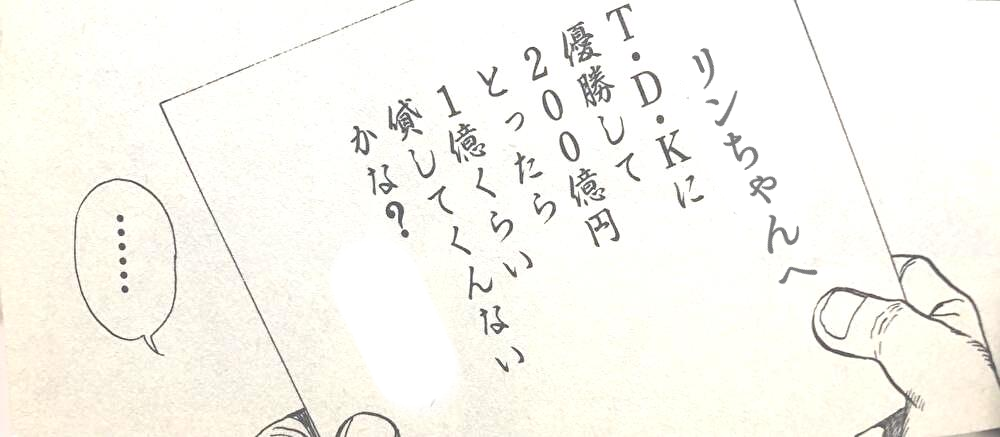 リンちゃんへ
T・D・Kに
優勝して
200億円
とったら
1億くらい
貸してくんない
かな?
……